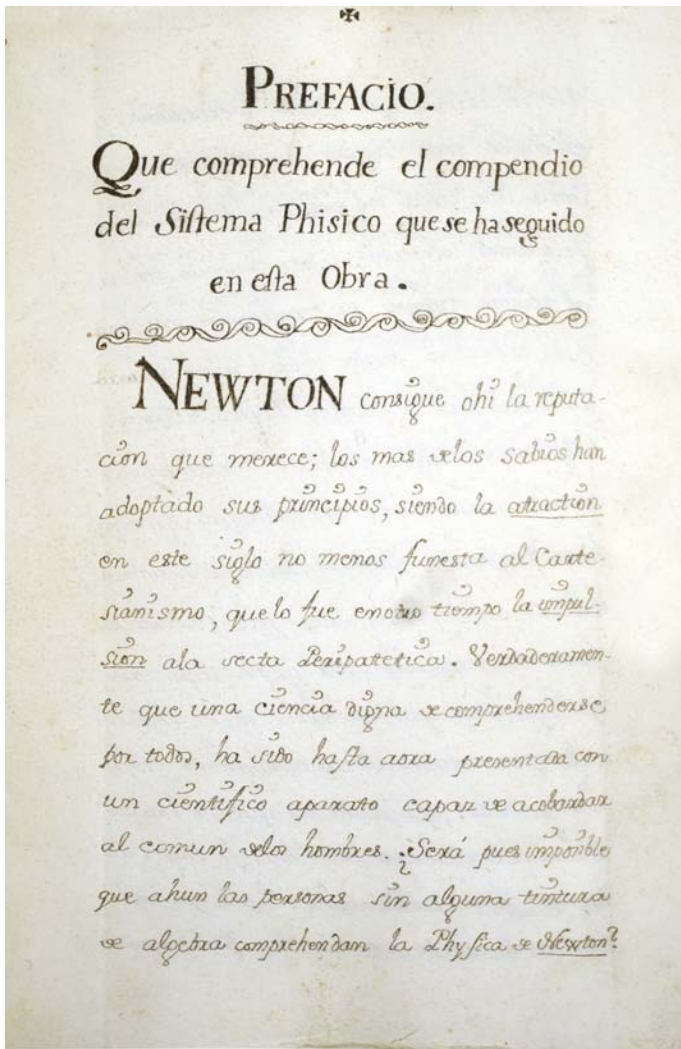 PREFACIO.
Que comprehende el compendio
del Sistema Phisico que se ha seguido
en esta Obra.
NEWTON consigue ohi la reputa-
cion que merece; los mas delos sabios han
adoptado sus principios, siendo la atraction
en este siglo no menos funesta al Carte-
sianismo, que lo fue en otro tiempo la impul-
sion ala secta Peripatetica. Verdaderamen-
te que una ciencia digna de comprehenderse
por todos, ha sido hasta aora presentada con
un cientifico aparato capaz de acobardar
al comun delos hombres. ¿Será pues imposible
que ahun las personas sin alguna tintura
de algebra comprehendan la Physica de Newton?